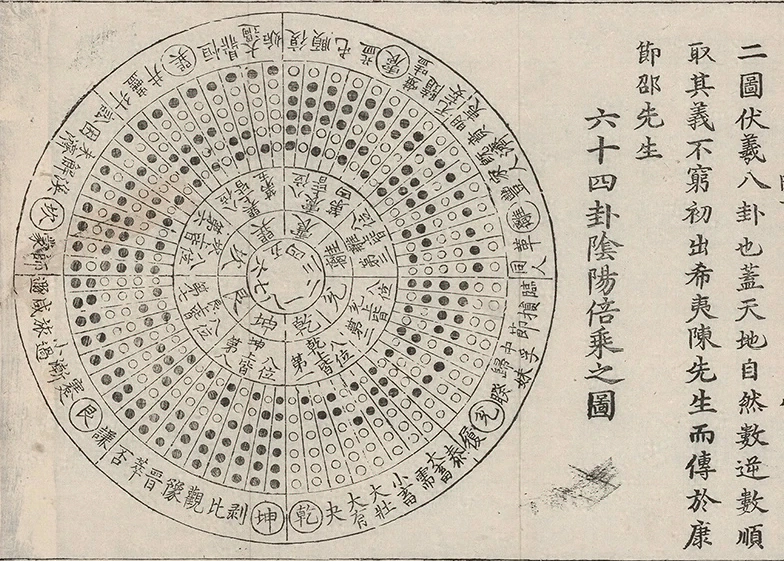 二圖伏羲八卦也蓋天地自然數逆數順
取其義不窮初出希夷陳先生而傳於康
節邵先生
六十四卦陰陽倍乘之圖
乾 夬 大有 大壯 小畜 需 大畜 泰
履 兌 睽 歸妹 中孚 節 損 臨
同人 革 離 豐 家人 濟 賁 明夷
无妄 隨 噬嗑 震 益 屯 頤 復
姤 大過 鼎 恒 巽 井 蠱 升
訟 困 未濟 解 渙 坎 蒙 師
遯 咸 旅 小過 漸 蹇 艮 謙
否 萃 晉 豫 觀 比 剝 坤
第一 八位
第二 八位
第三 八位
第四 八位
第五 八位
第六 八位
第七 八位
第八 八位
乾 兌 離 震 巽 坎 艮 坤
一 二 三 四 五 六 七 八